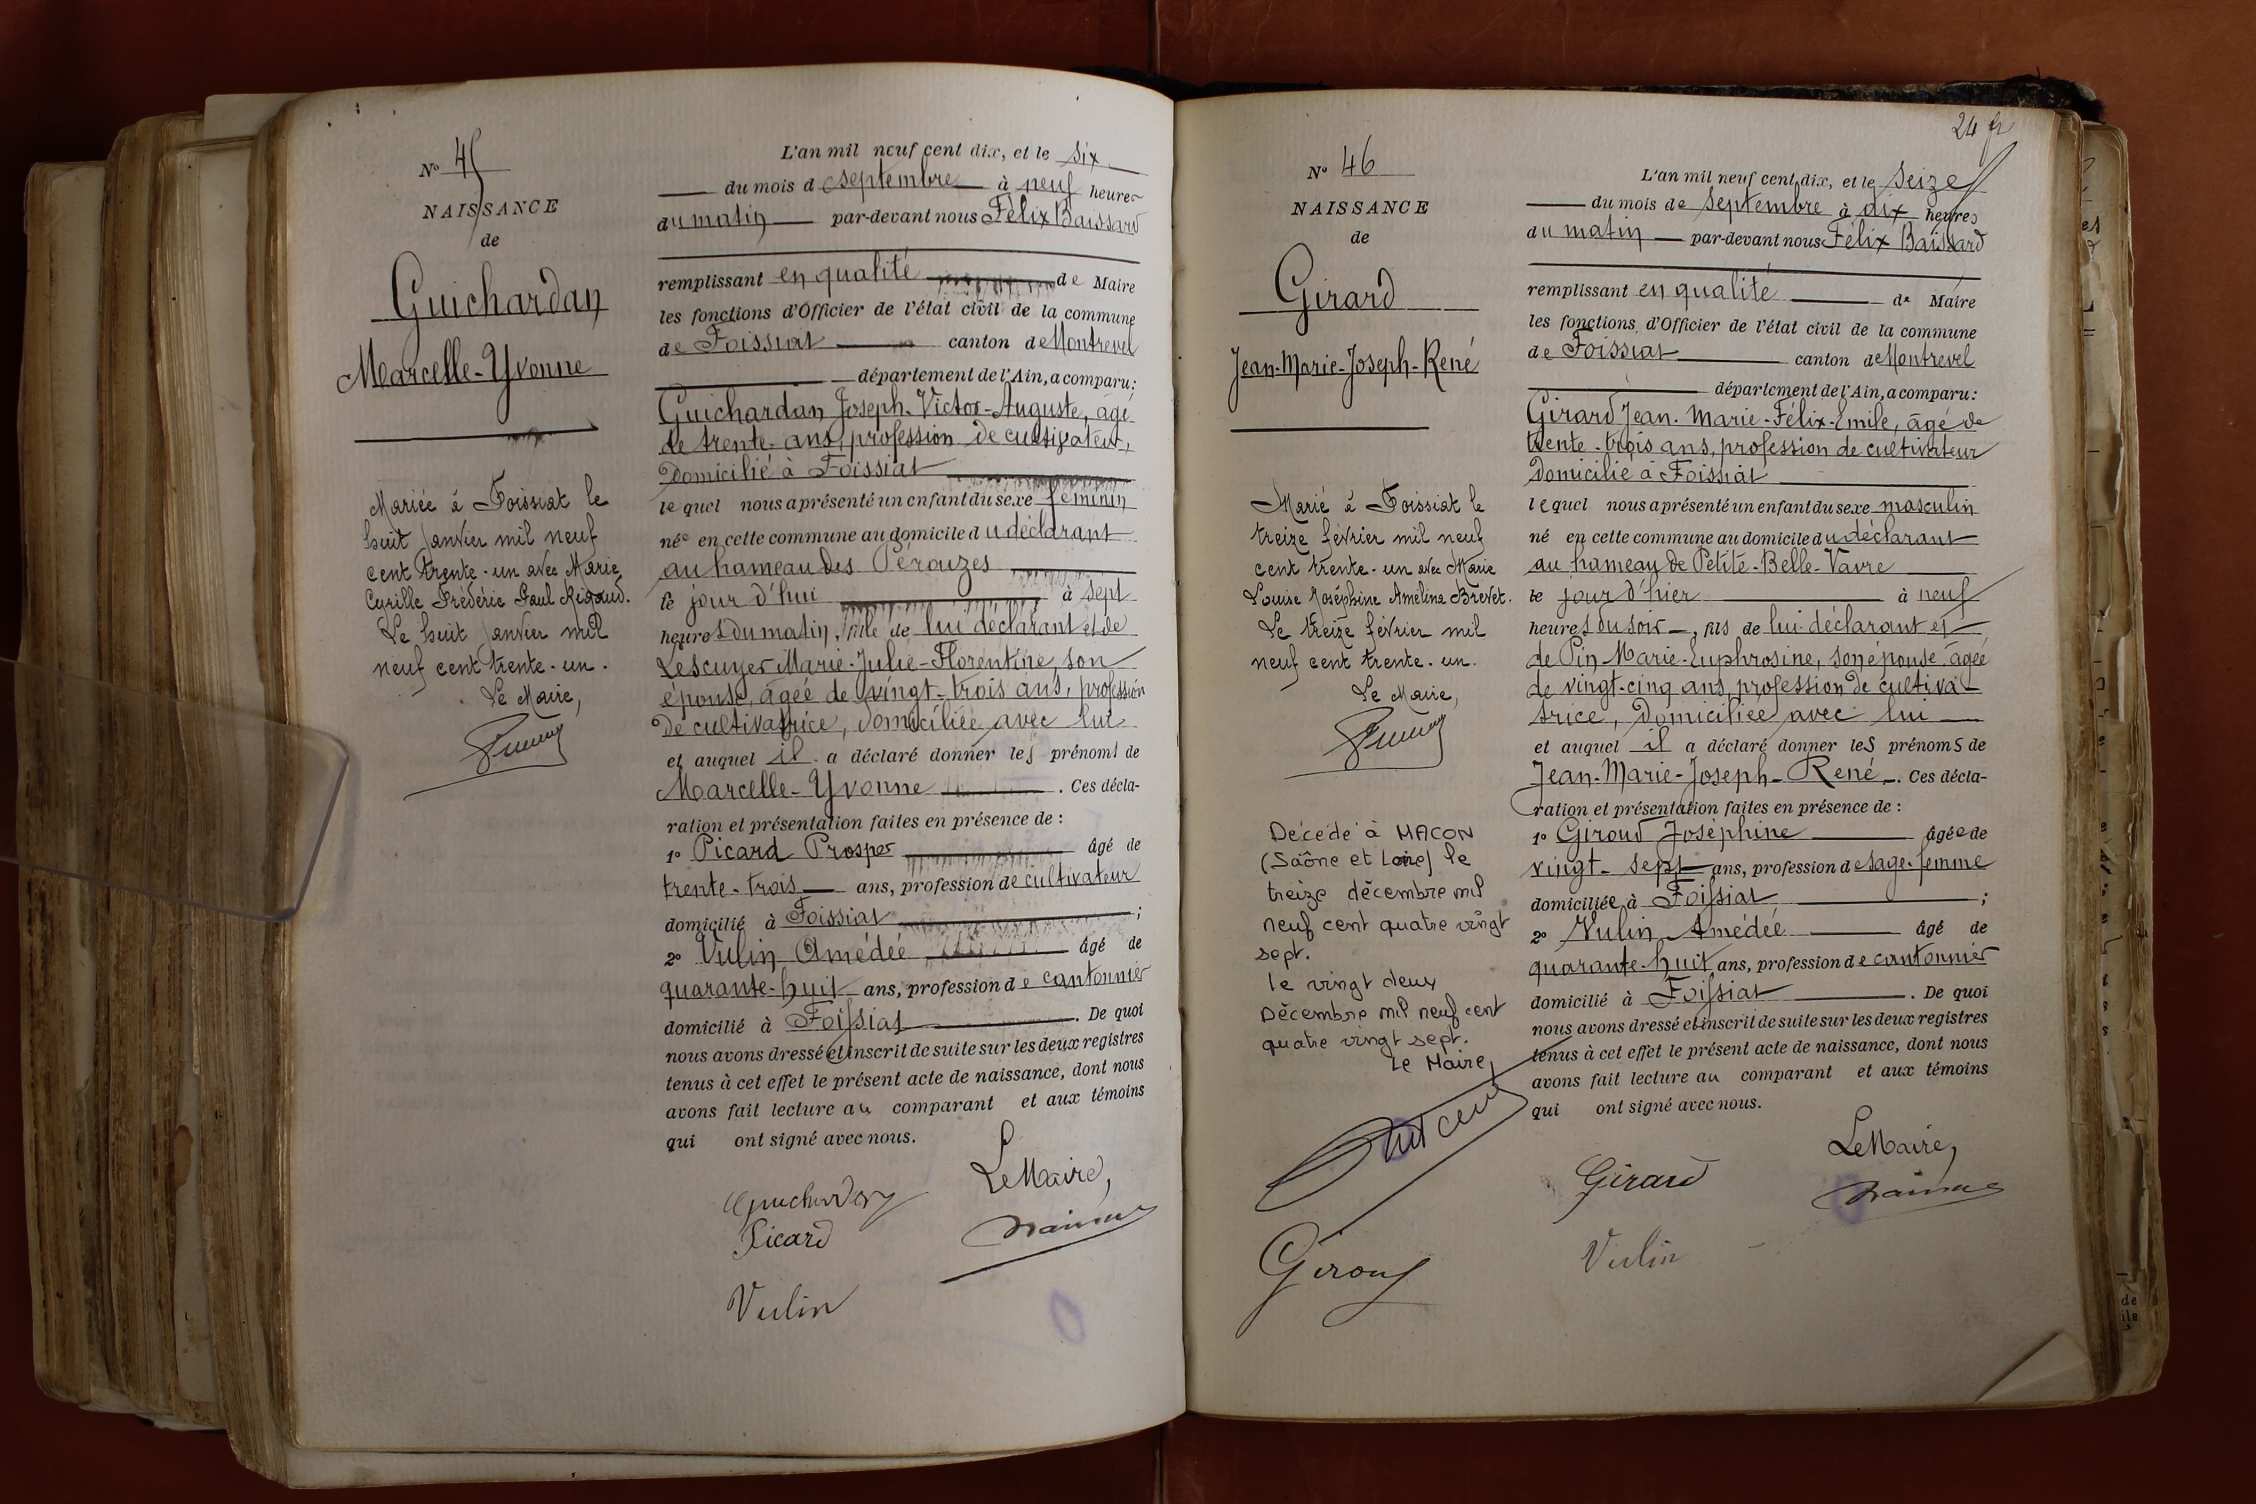 N° 45
NAISSANCE
de
Guichardan
Marcelle-Yvonne
Mariée à Foissiat le
huit janvier mil neuf
cent trente-un avec Marie
Cyrille Frédéric Paul Rigaud.
Le huit janvier mil
neuf cent trente-un.
Le Maire,
L'an mil neuf cent dix, et le six
du mois de septembre à neuf heures
du matin par-devant nous Félix Baissard
remplissant en qualité de Maire
les fonctions d'Officier de l'état civil de la commune
de Foissiat canton de Montrevel
département de l'Ain, a comparu :
Guichardan Joseph-Victor-Auguste, âgé
de trente ans, profession de cultivateur,
domicilié à Foissiat
lequel nous a présenté un enfant du sexe féminin
née en cette commune au domicile du déclarant
au hameau des Pérouzes
le jour d'hui à sept
heures du matin, fille de lui déclarant et de
Lescuyer Marie-Julie-Florentine, son
épouse, âgée de vingt-trois ans, profession
de cultivatrice, domiciliée avec lui
et auquel il a déclaré donner les prénoms de
Marcelle-Yvonne . Ces décla-
ration et présentation faites en présence de :
1° Picard Prosper âgé de
trente-trois ans, profession de cultivateur
domicilié à Foissiat ;
2° Vulin Amédée âgé de
quarante-huit ans, profession de cantonnier
domicilié à Foissiat . De quoi
nous avons dressé et inscrit de suite sur les deux registres
tenus à cet effet le présent acte de naissance, dont nous
avons fait lecture au comparant et aux témoins
qui ont signé avec nous.
Le Maire,
Guichardan
Picard
Vulin
24
N° 46
NAISSANCE
de
Girard
Jean-Marie-Joseph-René
Marié à Foissiat le
treize février mil neuf
cent trente-un avec Marie
Louise Joséphine Amélina Brevet.
Le treize février mil
neuf cent trente-un.
Le Maire,
Décédé à MACON
(Saône et Loire) le
treize décembre mil
neuf cent quatre vingt
sept.
le vingt deux
Décembre mil neuf cent
quatre vingt sept.
Le Maire,
L'an mil neuf cent dix, et le seize
du mois de septembre à dix heures
du matin par-devant nous Félix Baissard
remplissant en qualité de Maire
les fonctions d'Officier de l'état civil de la commune
de Foissiat canton de Montrevel
département de l'Ain, a comparu :
Girard Jean-Marie-Félix-Emile, âgé de
trente-trois ans, profession de cultivateur
domicilié à Foissiat
lequel nous a présenté un enfant du sexe masculin
né en cette commune au domicile du déclarant
au hameau de Petite-Belle-Vavre
le jour d'hier à neuf
heures du soir, fils de lui déclarant et
de Pin Marie-Euphrosine, son épouse âgée
de vingt-cinq ans, profession de cultiva-
trice, domiciliée avec lui
et auquel il a déclaré donner les prénoms de
Jean-Marie-Joseph-René. Ces décla-
ration et présentation faites en présence de :
1° Giroud Joséphine âgée de
vingt-sept ans, profession de sage-femme
domiciliée à Foissiat ;
2° Vulin Amédée âgé de
quarante-huit ans, profession de cantonnier
domicilié à Foissiat . De quoi
nous avons dressé et inscrit de suite sur les deux registres
tenus à cet effet le présent acte de naissance, dont nous
avons fait lecture au comparant et aux témoins
qui ont signé avec nous.
Le Maire,
Girard
Giroud
Vulin